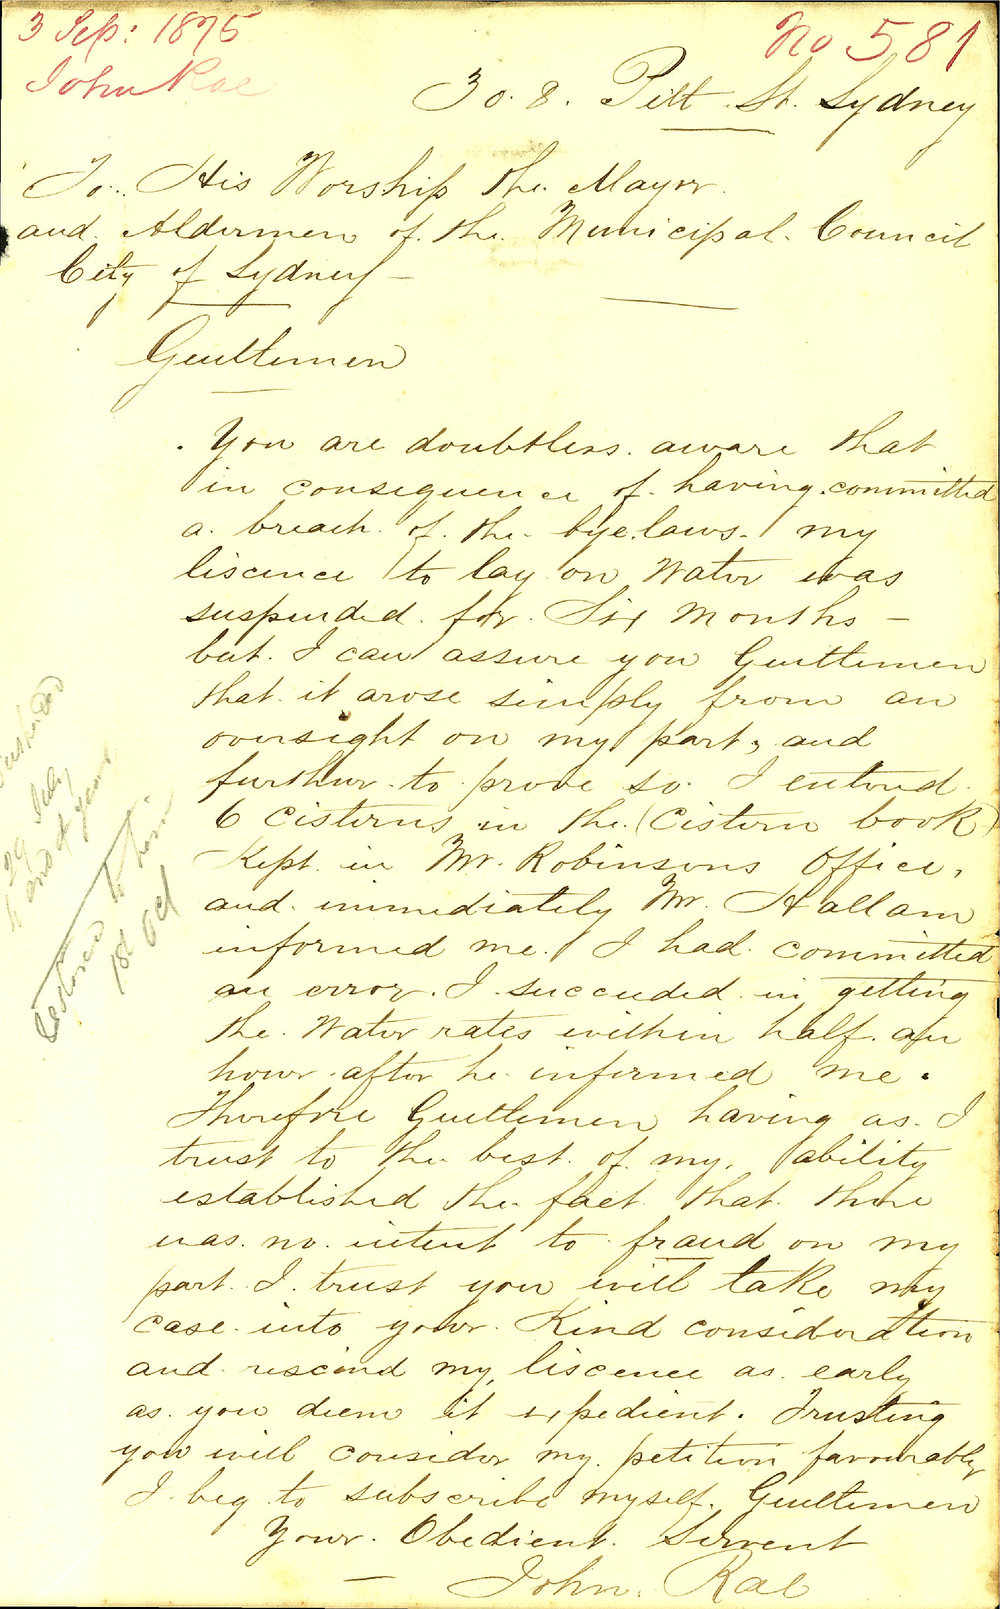 3 Sep: 1875
John Rae
No 581
308. Pitt St. Sydney
To. His Worship the Mayor
and Aldermen of the Municipal Council
City of Sydney –
Gentlemen
You are doubtless aware that
in consequence of having committed
a breach of the bye.laws. my
liscence to lay on Water was
suspended for Six Months –
but I can assure you Gentlemen
that it arose simply from an
oversight on my part, and
further to prove so I entered
6 Cisterns in the (Cistern book)
Kept in Mr. Robinsons Office,
and immediately Mr. Hallam
informed me. I had committed
an error. I succeeded in getting
the Water rates within half an
hour after he informed me.
Therefore Gentlemen having as I
trust to the best of my ability
established the fact that there
was no intent to fraud on my
part I trust you will take my
case into your Kind consideration
and rescind my liscence as early
as you deem it expedient. Trusting
you will consider my petition favourably
I beg to subscribe myself. Gentlemen
Your Obedient Servent
– John Rae
suspended
29 July
Restored to him
1st Oct